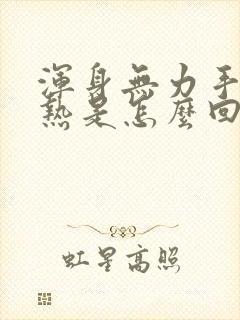 渾身無力手
熱是怎麼回
虹星高照